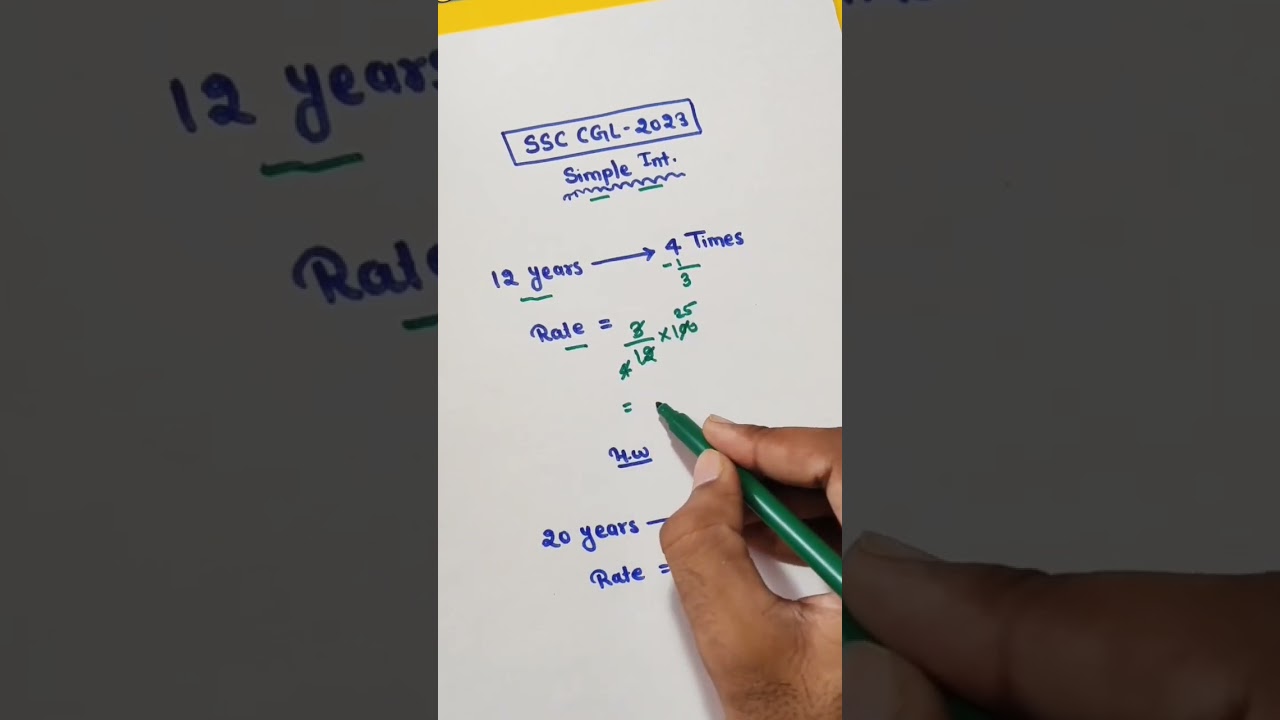 SSC CGL-2023
Simple Int.
12 years → 4 Times
-1
3
Rate = 3/12 × 100
4 25
=
H.W
20 years —
Rate =